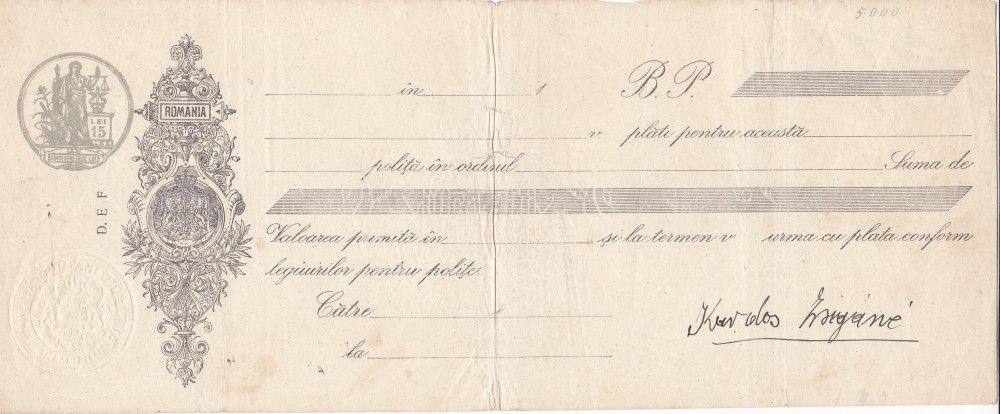 5.000
in 1 B. P.
ROMANIA
LEI
15
v plăti pentru această
poliță în ordinul Suma de
D. E F
Valoarea primită în și la termen v urma cu plata conform
legiuirilor pentru polițe.
Către
la
Kardos